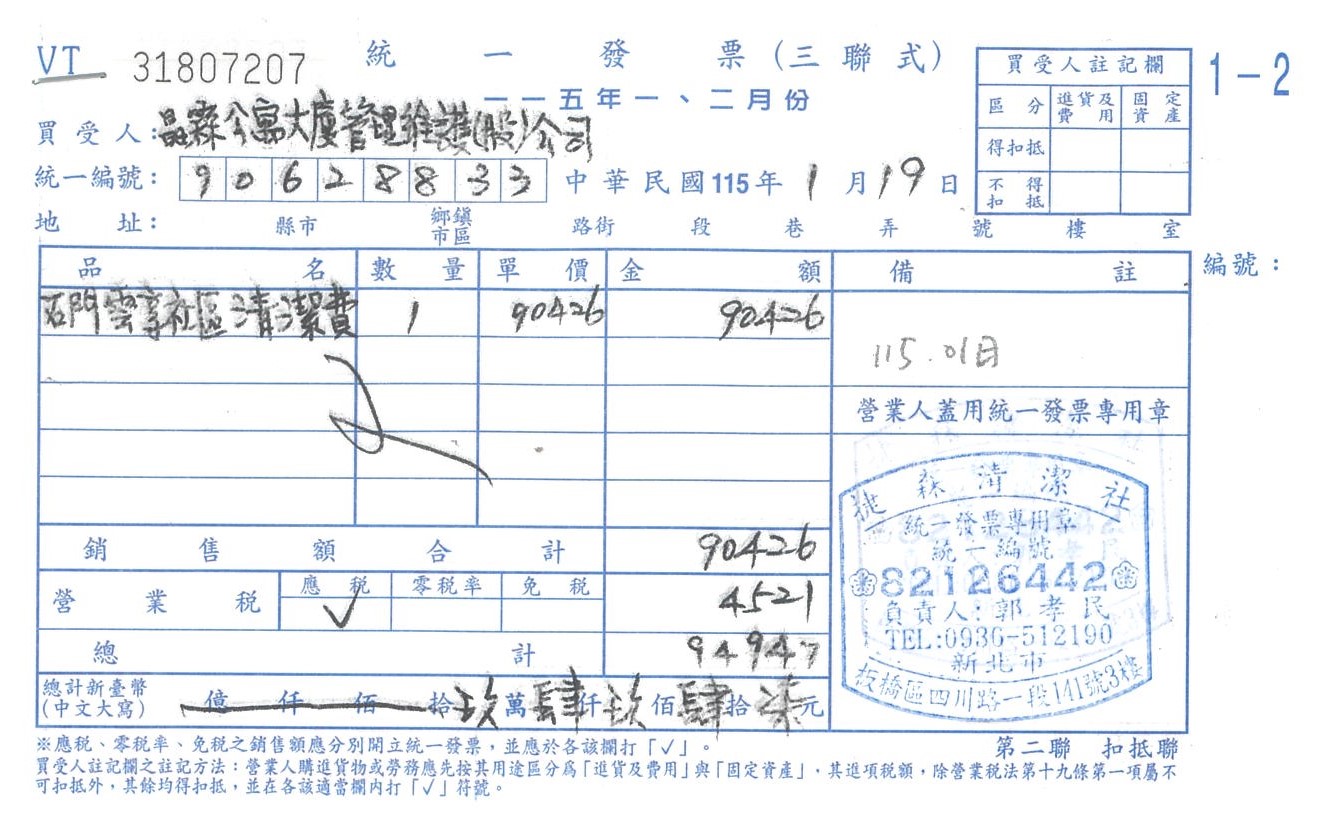 VT 31807207 統一發票(三聯式)
一一五年一、二月份
1-2
買受人註記欄
區分 進貨及費用 固定資產
得扣抵
不得扣抵
買受人:晶霖公寓大廈管理維護(股)公司
統一編號: 90628833 中華民國115年1月19日
地址: 縣市 鄉鎮市區 路街 段 巷 弄 號 樓 室
品名 數量 單價 金額 備註 編號:
石門雲享社區清潔費 1 90426 90426
115.01月
營業人蓋用統一發票專用章
捷森清潔社
統一發票專用章
統一編號
82126442
負責人:郭孝民
TEL:0936-512190
新北市
板橋區四川路一段141號3樓
銷售額合計 90426
營業稅 應稅 ✓ 零稅率 免稅 4521
總計 94947
總計新臺幣(中文大寫) 億仟佰拾玖萬肆仟玖佰肆拾柒元
※應稅、零稅率、免稅之銷售額應分別開立統一發票,並應於各該欄打「✓」。
第二聯 扣抵聯
買受人註記欄之註記方法:營業人購進貨物或勞務應先按其用途區分為「進貨及費用」與「固定資產」,其進項稅額,除營業稅法第十九條第一項屬不
可扣抵外,其餘均得扣抵,並在各該適當欄內打「✓」符號。